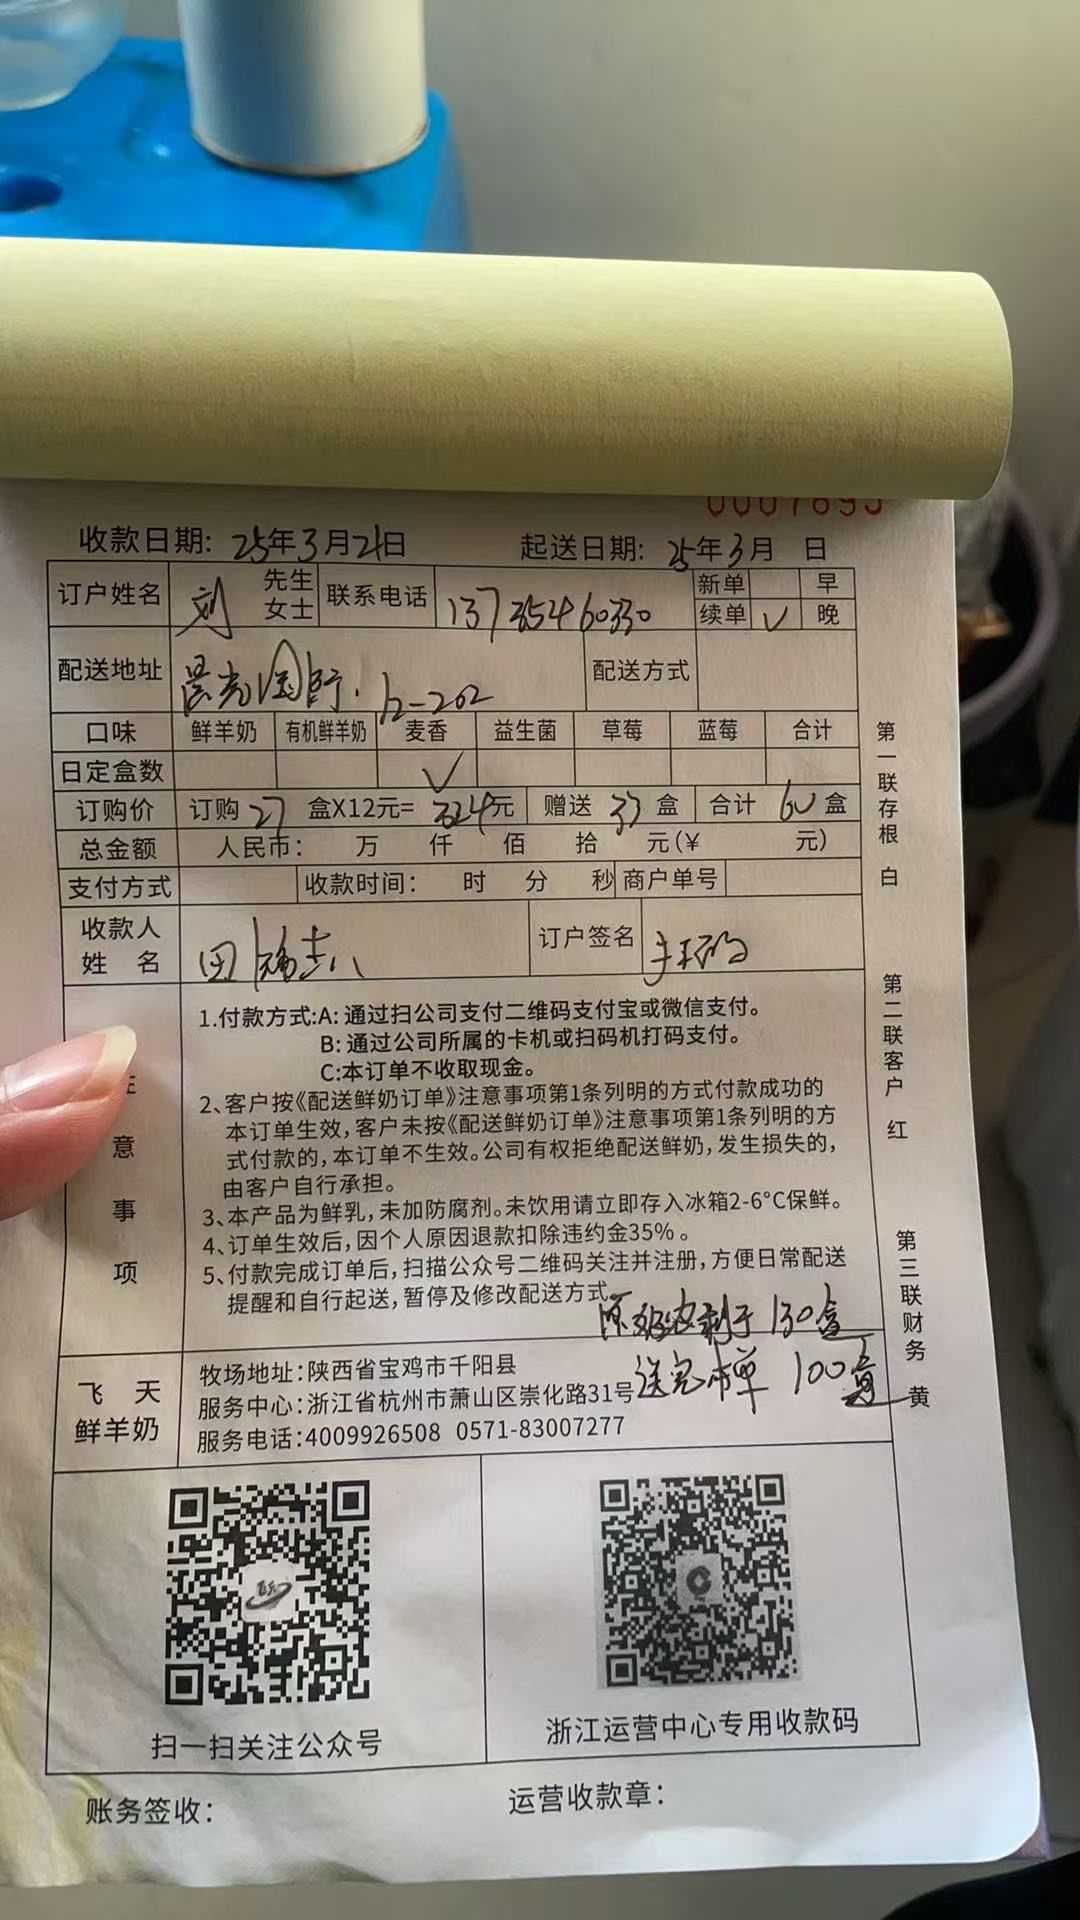 收款日期: 25年3月21日 起送日期: 25年3月 日
订户姓名 刘 先生 女士 联系电话 新单 早
续单 √ 晚
配送地址 12-202 配送方式
口味 鲜羊奶 有机鲜羊奶 麦香 益生菌 草莓 蓝莓 合计
日定盒数 √
订购价 订购 27 盒X12元= 324元 赠送 33 盒 合计 60 盒
总金额 人民币: 万 仟 佰 拾 元(¥ 元)
支付方式 收款时间: 时 分 秒 商户单号
收款人姓名 田 订户签名
注意事项
1.付款方式:A: 通过扫公司支付二维码支付宝或微信支付。
B: 通过公司所属的卡机或扫码机打码支付。
C:本订单不收取现金。
2、客户按《配送鲜奶订单》注意事项第1条列明的方式付款成功的
本订单生效,客户未按《配送鲜奶订单》注意事项第1条列明的方
式付款的,本订单不生效。公司有权拒绝配送鲜奶,发生损失的,
由客户自行承担。
3、本产品为鲜乳,未加防腐剂。未饮用请立即存入冰箱2-6°C保鲜。
4、订单生效后,因个人原因退款扣除违约金35%。
5、付款完成订单后,扫描公众号二维码关注并注册,方便日常配送
提醒和自行起送,暂停及修改配送方式。
130盒
100盒
飞天鲜羊奶
牧场地址:陕西省宝鸡市千阳县
服务中心:浙江省杭州市萧山区崇化路31号
服务电话:4009926508 0571-83007277
扫一扫关注公众号 浙江运营中心专用收款码
账务签收: 运营收款章:
第一联存根 白
第二联客户 红
第三联财务 黄